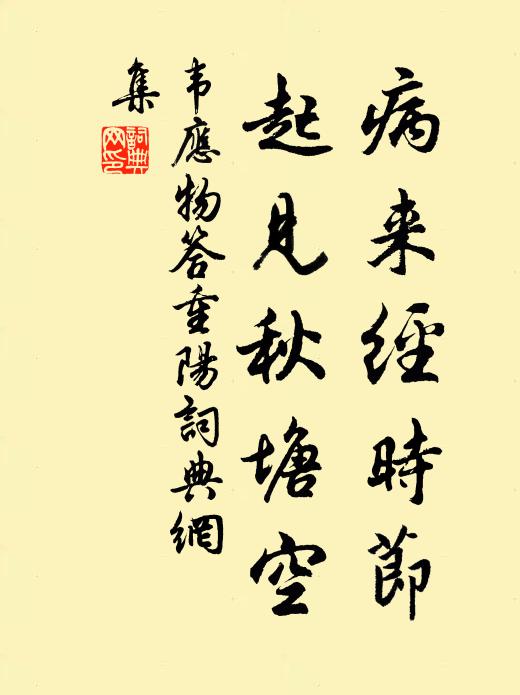 病来經時節
起見秋塘空
韦應物答重陽詞典網
集
詞典
网印